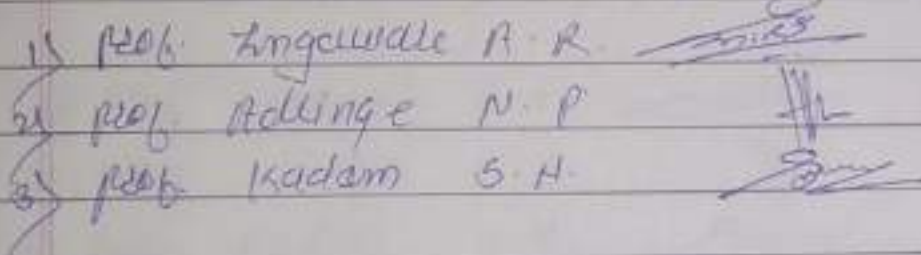 1) Prof. Ingawale A. R.
2) Prof. Adlinge N. P.
3) Prof. Kadam S. H.